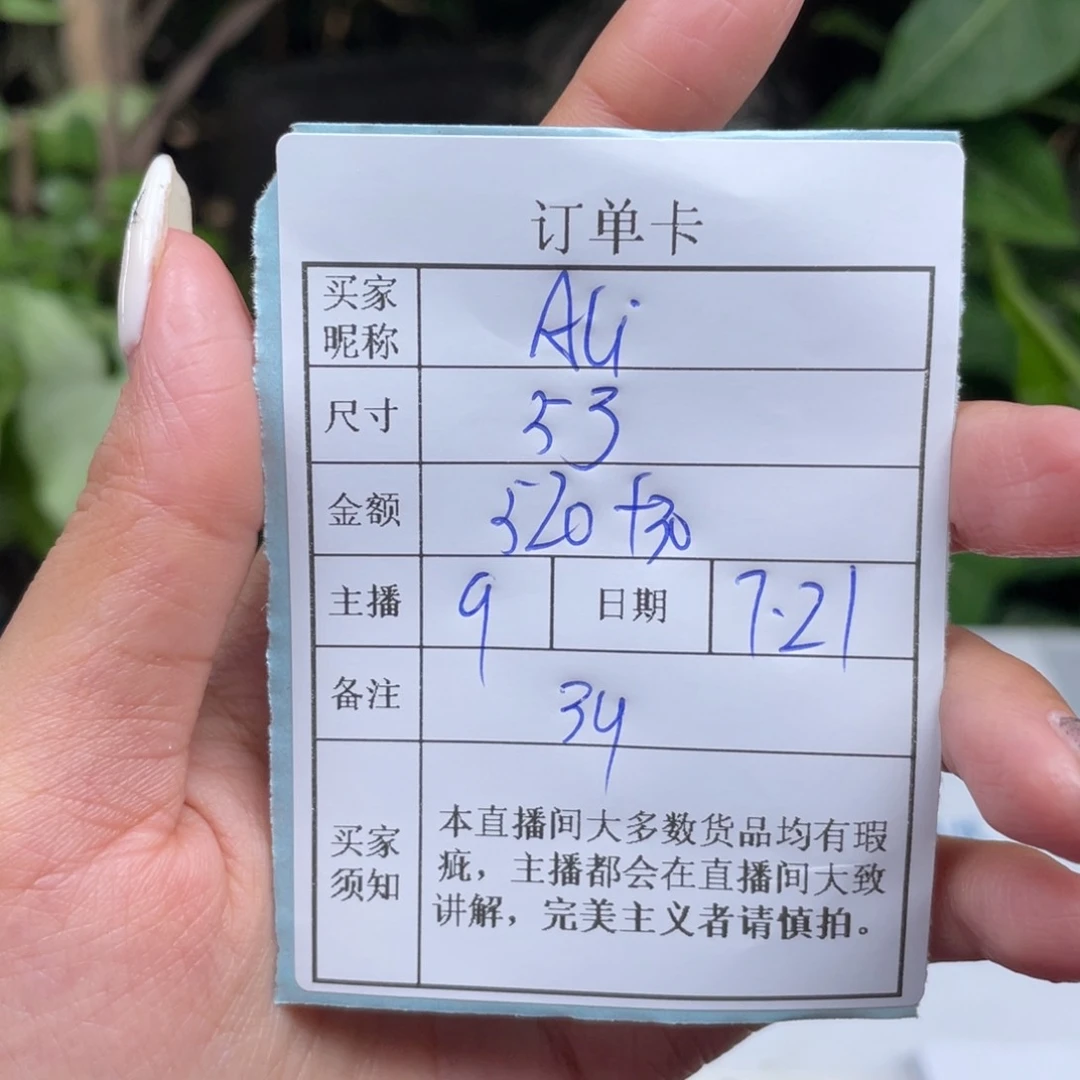 订单卡
买家昵称 Ali
尺寸 53
金额 520+30
主播 9 日期 7.21
备注 34
买家须知
本直播间大多数货品均有瑕
疵，主播都会在直播间大致
讲解，完美主义者请慎拍。